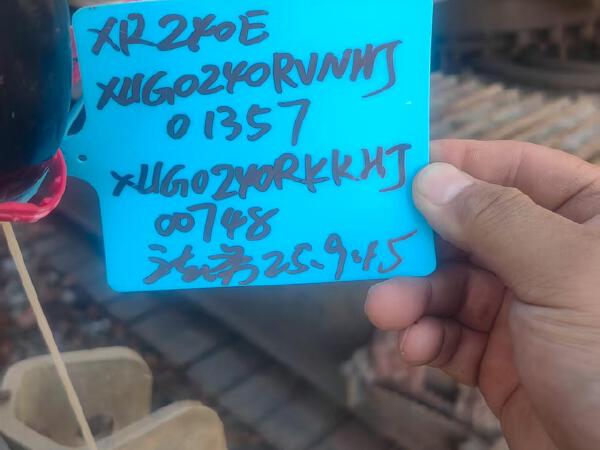 XR240E
XUG0240RVNHJ
01357
XUG0240RKKHJ
00748
25.9.15